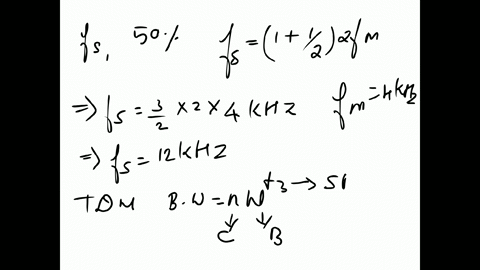 fs, 50% fs = (1 + 1/2) 2fm
⇒ fs = 3/2 × 2 × 4 kHz fm = 4 kHz
⇒ fs = 12 kHz
TDM B.W = n W
↓ ↓
C B